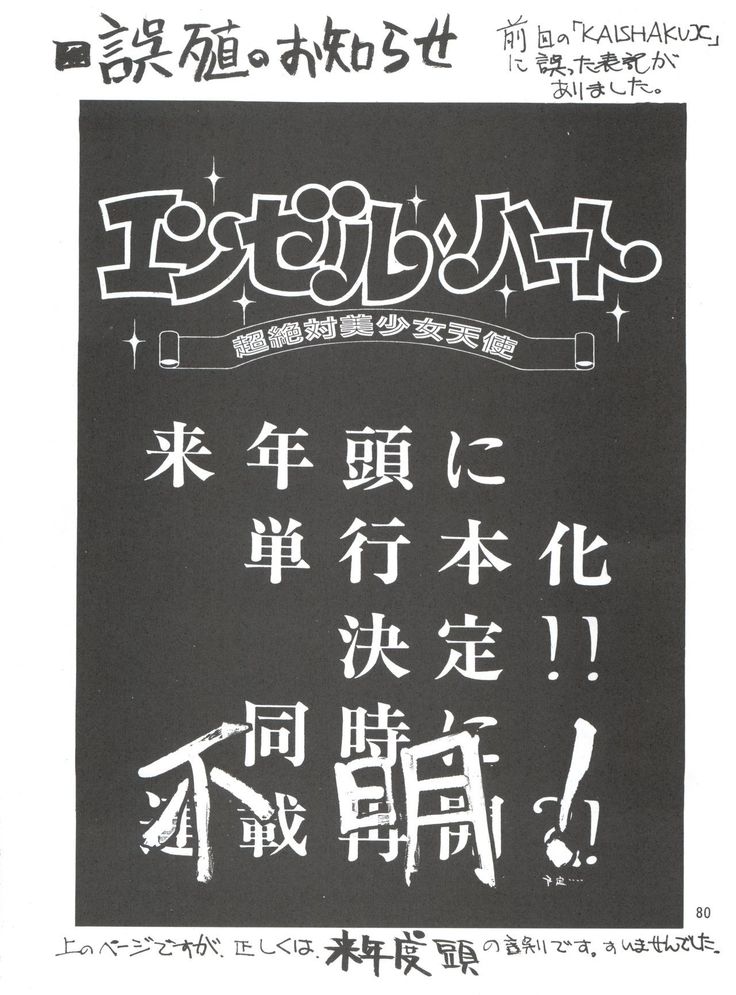 誤殖のお知らせ
前回の「KAISHAKUX」
に誤った表記が
ありました。
エンゼル・ハート
超絶対美少女天使
来年頭に
単行本化
決定!!
同時に
連載再開?!
予定・・・・
不明!
80
上のページですが、正しくは、来年度頭の誤りです。すいませんでした。